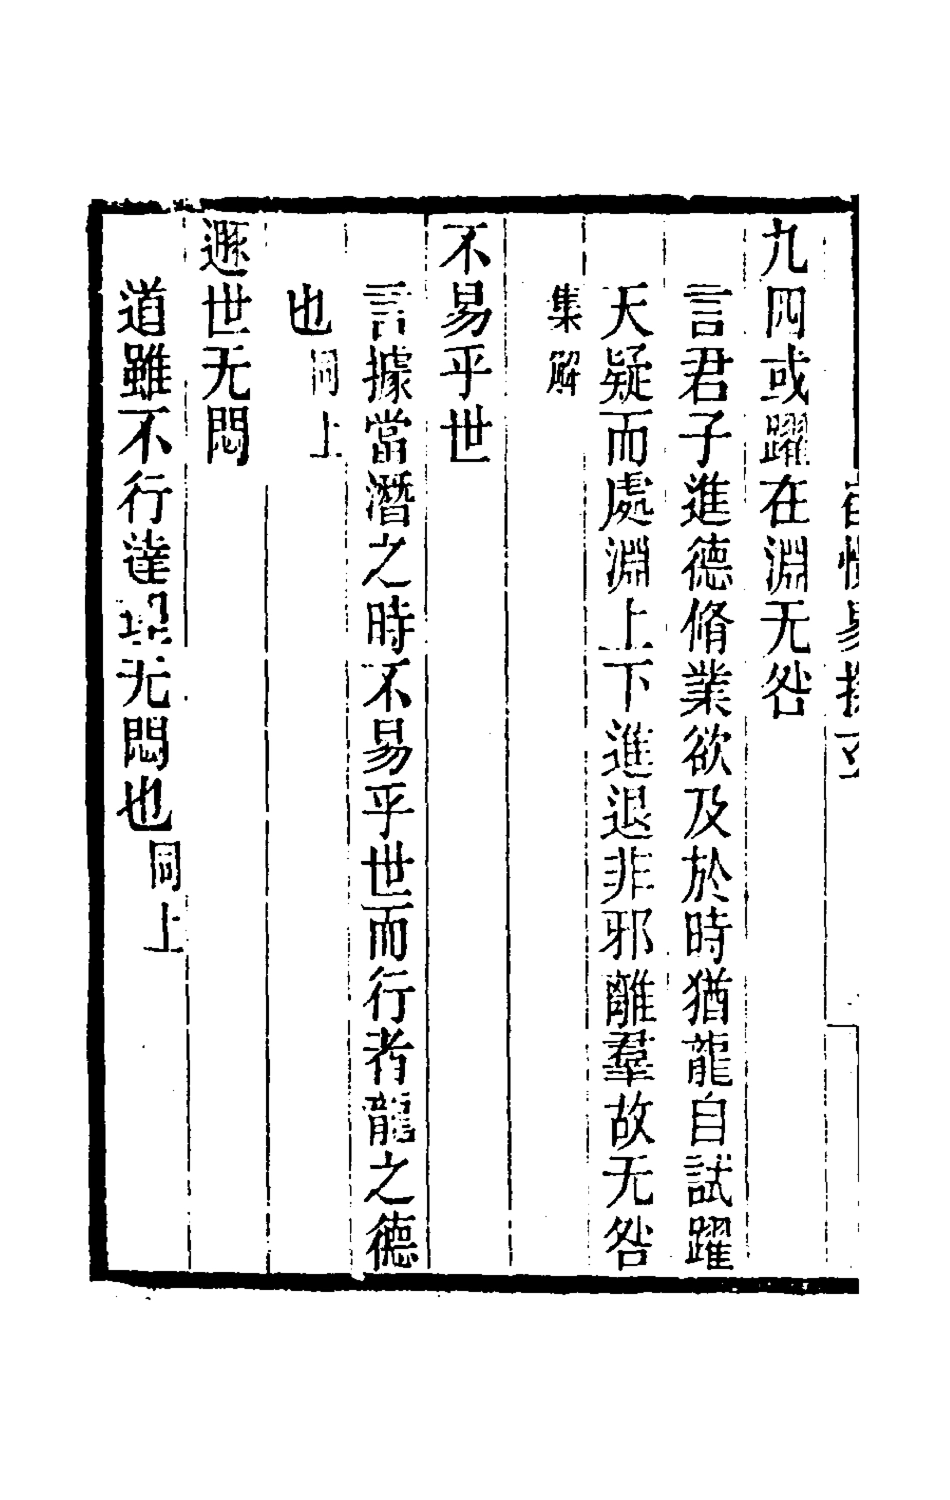 九四或躍在淵无咎
言君子進德脩業欲及於時猶龍自試躍
天疑而處淵上下進退非邪離羣故无咎
集解
不易乎世
言據當潛之時不易乎世而行者龍之德
也同上
遯世无悶
道雖不行達理无悶也同上